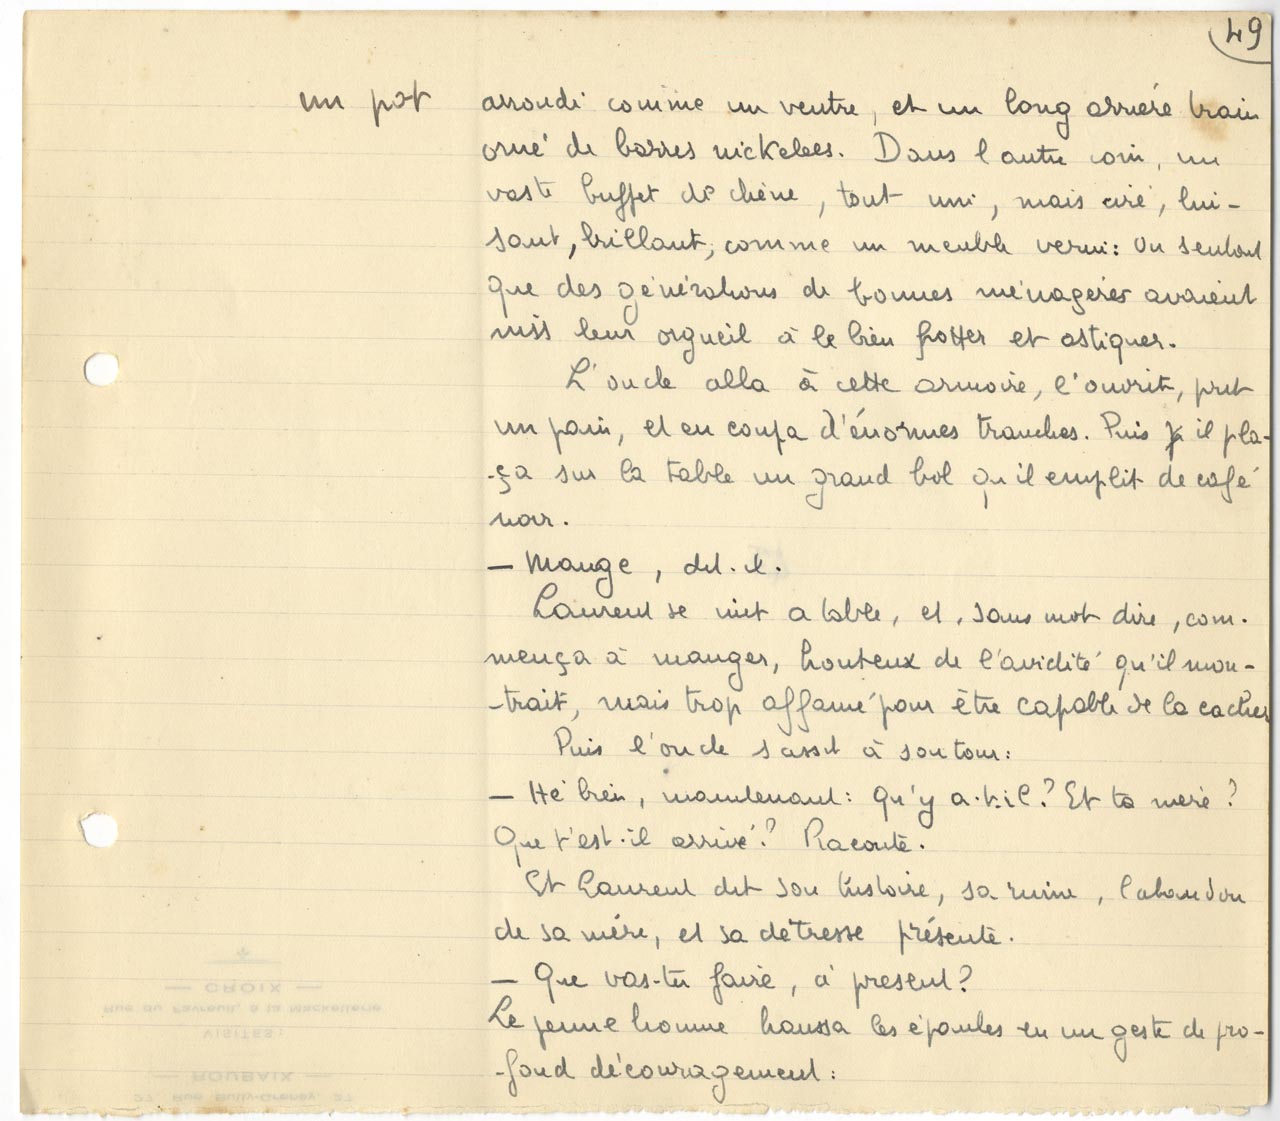 49
un pot arrondi comme un ventre, et un long arrière train
orné de barres nickelées. Dans l'autre coin, un
vaste buffet de chêne, tout uni, mais ciré, lui-
sant, brillant, comme un meuble verni: On sentait
que des générations de bonnes ménagères avaient
mis leur orgueil à le bien frotter et astiquer.
L'oncle alla à cette armoire, l'ouvrit, prit
un pain, et en coupa d'énormes tranches. Puis il pla-
-ça sur la table un grand bol qu'il emplit de café
noir.
— Mange, dit-il.
Laurent se mit a table, et, sans mot dire, com-
mença à manger, honteux de l'avidité qu'il mon-
-trait, mais trop affamé pour être capable de la cacher
Puis l'oncle s'assit à son tour:
— Hé bien, maintenant: Qu'y a-t-il? Et ta mère?
Que t'est-il arrivé? Raconte.
Et Laurent dit son histoire, sa ruine, l'abandon
de sa mère, et sa détresse présente.
— Que vas-tu faire, à présent?
Le jeune homme haussa les épaules en un geste de pro-
-fond découragement:
— CROIX —
Rue du Favreuil, à la Mackellerie
VISITES:
— ROUBAIX —
27, Rue Bully-Grenay, 27